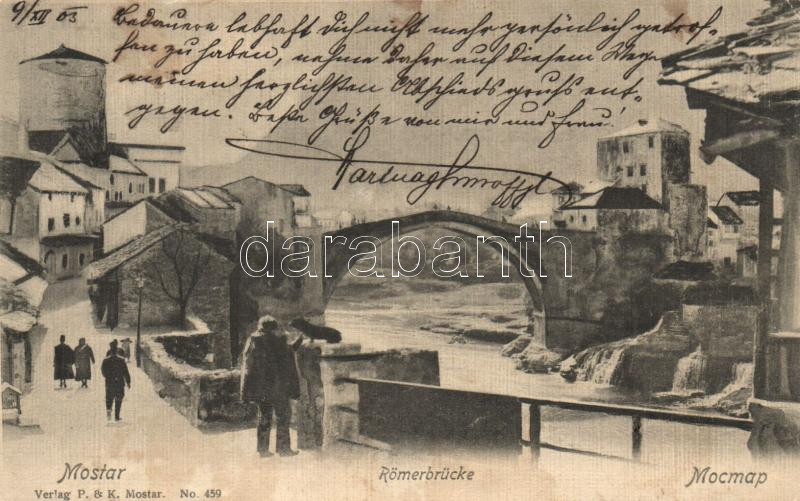 9/XII 03
Bedauere lebhaft Dich nicht mehr persönlich getrof-
fen zu haben, nehme daher auf diesem Wege
meinen herzlichsten Abschiedsgruß ent-
gegen. Beste Grüße von mir und Frau!
darabanth
Mostar
Römerbrücke
Мостар
Verlag P. & K. Mostar. No. 459